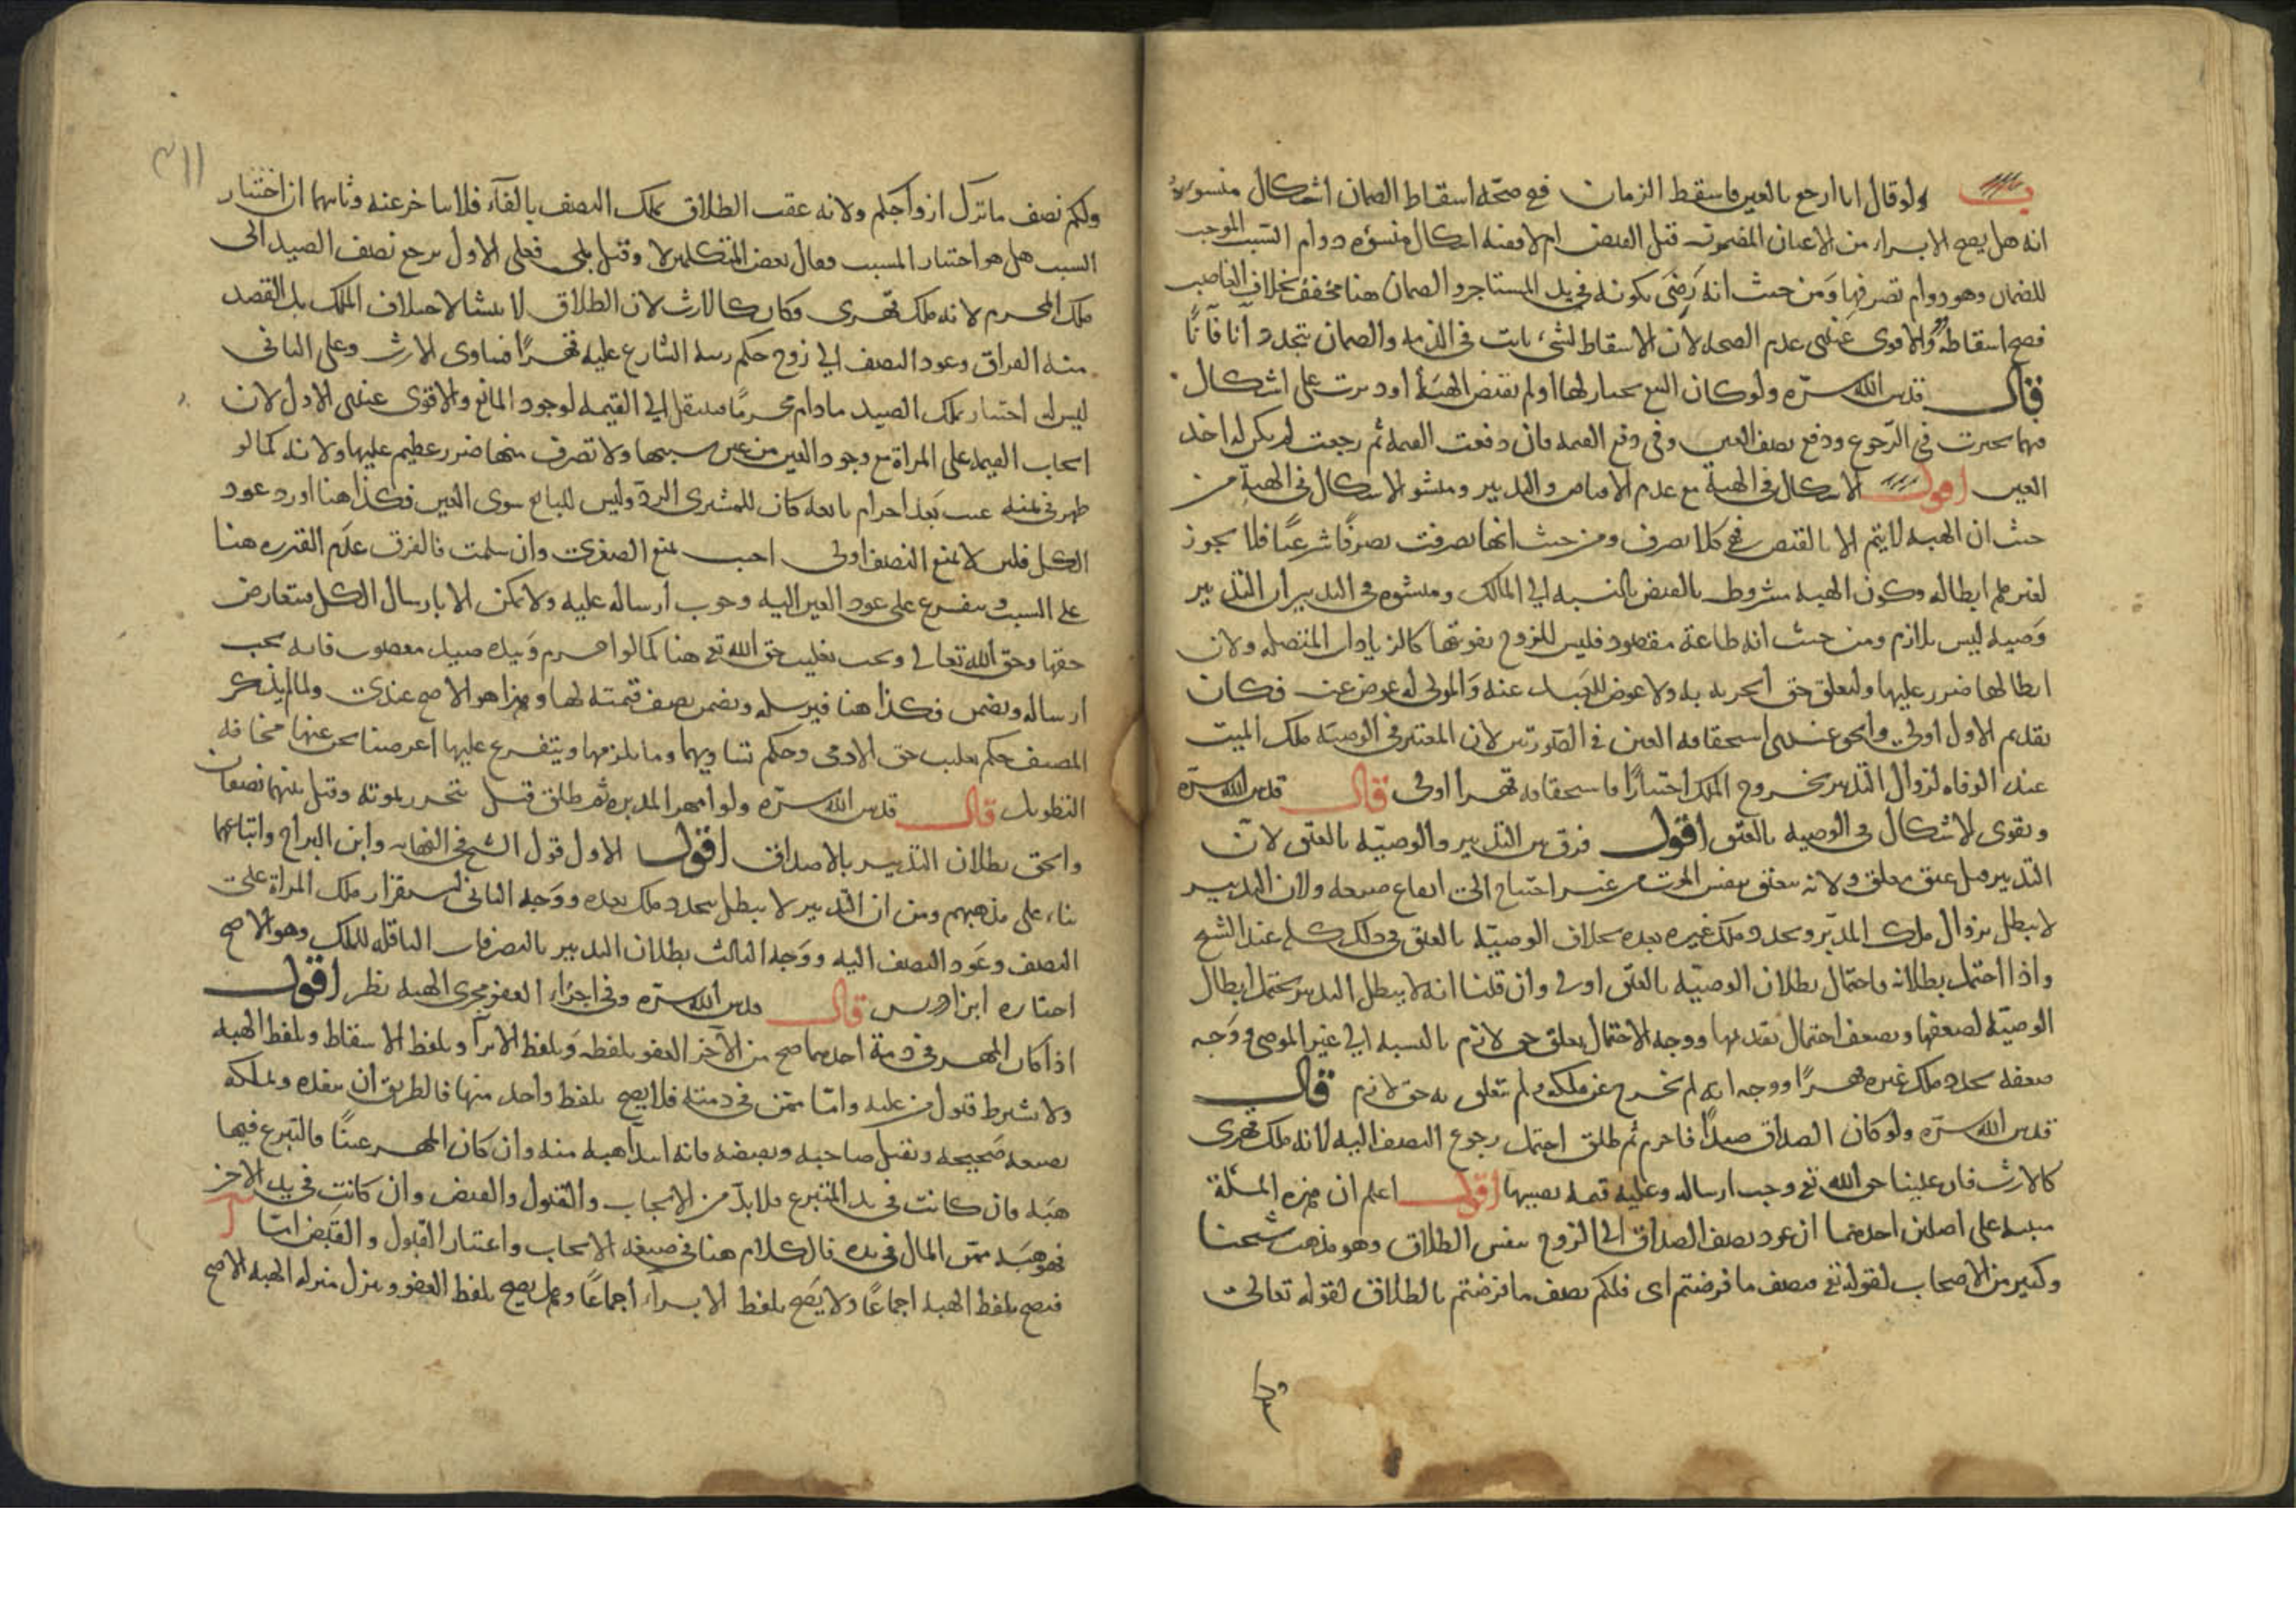 ولو قال انا ارجع بالعين فاسقط الزمان ففي صحة اسقاط الضمان اشكال منشوءه
انه هل يصح الابراء من الاعيان المضمونة قبل القبض ام لا ففيه اشكال منشوءه دوام السبب الموجب
للضمان وهو دوام تصرفها ومن حيث انه رضى بكونه في يد المستاجر والضمان هنا مخفف بخلاف الغاصب
فصح اسقاطه والاقوى عندي عدم الصحة لان الاسقاط لشيء ثابت في الذمة والضمان يتجدد آنا فآنا
قال قدس الله سره ولو كان البيع بخيار لها او لم تقبض الهبة او دبرت على اشكال
فيهما تخيرت في الرجوع ودفع نصف العين وفي دفع القيمة فان دفعت القيمة ثم رجعت لم يكن له اخذ
العين اقول الاشكال في الهبة مع عدم الاقباض والتدبير ومنشؤ الاشكال في الهبة من
حيث ان الهبة لا يتم الا بالقبض فهي كلا تصرف ومن حيث انها تصرفت تصرفا شرعيا فلا يجوز
لغيرهم ابطاله وكون الهبة مشروط بالقبض بالنسبه الى المالك ومنشوه في التدبير ان التدبير
وصيه ليس بلازم ومن حيث انه طاعة مقصود فليس للزوج تفويتها كالزيادات المتصله ولان
ابطالها ضرر عليها ولتعلق حق الحرية به ولا عوض للعبد عنه والمولى له عوض عنه فكان
تقديم الاول اولى والحق عندي استحقاقه العين في الصورتين لان المعتبر في الوصية ملك الميت
عند الوفاه لزوال التدبير بخروج الملك اختيارا فاستحقاقه قهرا اولى قال قدس الله سره
ويقوى لاشكال في الوصيه بالعتق اقول فرق بين التدبير والوصيّه بالعتق لان
التدبير قيل عتق معلق ولانه يتعلق بنفس الموت من غير احتياج الى ايقاع صيغه ولان التدبير
لا يبطل بزوال ملك المدبّر وتجدد ملك غيره بعده بخلاف الوصيّه بالعتق في ذلك كله عند الشيخ
واذا احتمل بطلانه فاحتمال بطلان الوصيّه بالعتق اولى وان قلنا انه لا يبطل التدبير يحتمل ابطال
الوصيّه لضعفها ويضعف احتمال تقديمها ووجه الاحتمال تعلق حق لازم بالنسبه الى غير الموصى ووجه
ضعفه تجدد ملك غيره قهرا ووجه انه لم يخرج عن ملكه ولم يتعلق به حق لازم قال
قدس الله سره ولو كان الصداق صيدا فاحرم ثم طلق احتمل رجوع النصف اليه لانه ملك قهري
كالارث فان علينا حق الله تع وجب ارساله وعليه قيمه نصيبها اقول اعلم ان هذه المسئلة
مبنيه على اصلين احدهما ان عود نصف الصداق الى الزوج بنفس الطلاق وهو مذهب شيخنا
وكثير من الاصحاب لقوله تع فنصف ما فرضتم اى فلكم نصف ما فرضتم بالطلاق لقوله تعالى
ولكم نصف ما ترك ازواجكم ولانه عقب الطلاق بملك النصف بالفاء فلا يتاخر عنه وثانيهما ان اختيار
السبب هل هو اختيار المسبب فقال بعض المتكلمين لا وقيل بلى فعلى الاول يرجع نصف الصيد الى
ملك المحرم لانه ملك قهرى وكان كالارث لان الطلاق لا ينشا لاختلاف الملك بل القصد
منه الفراق وعود النصف الى الزوج حكم رتبه الشارع عليه قهرا فساوى الارث وعلى الثاني
ليس له اختيار تملك الصيد ما دام محرما فينتقل الى القيمه لوجود المانع والاقوى عندى الاول لان
ايجاب القيمه على المراة مع وجود العين من غير سببها ولا تصرف منها ضرر عظيم عليها ولانه كما لو
ظهر في ثمنه عيب بعد احرام بائعه كان للمشترى الرد وليس للبايع سوى العين فكذا هنا اورد عود
الكل فلئن لا يمنع النصف اولى اجيب بمنع الصغرى وان سلمت فالفرق عدم القدره هنا
على السبب ويتفرع على عود العين اليه وجوب ارساله عليه ولا يمكن الا بارسال الكل فتعارض
حقها وحق الله تعالى ويجب تغليب حق الله تع هنا كما لو احرم وبيده صيد مغصوب فانه يجب
ارساله ويضمن فكذا هنا فيرسله ويضمن نصف قيمته لها وهذا هو الاصح عندى ولما لم يذكر
المصنف حكم تغليب حق الادمى وحكم تساويهما وما يلزمهما ويتفرع عليها اعرضنا نحن عنها مخافة
التطويل قال قدس الله سره ولو امهر المدبره ثم طلق قبل تتحرر بموته وقيل بينهما نصفان
والحق بطلان التدبير بالاصداق اقول الاول قول الشيخ في النهايه وابن البراج واتباعهما
بناء على مذهبهم ومن ان التدبير لا يبطل بتجدد ملك بعده ووجه الثاني استقرار ملك المراة على
النصف وعود النصف اليه ووجه الثالث بطلان التدبير بالتصرفات الناقله للملك وهو الاصح
اختاره ابن ادريس قال قدس الله سره وفي اجزاء العفو مجرى الهبه نظر اقول
اذا كان المهر في ذمة احدهما صح من الآخر العفو بلفظه وبلفظ الابراء وبلفظ الاسقاط وبلفظ الهبه
ولا يشترط قبول من عليه وامّا ممن في ذمته فلا يصح بلفظ واحد منها فالطريق ان ينقده ويملكه
بصيغه صحيحه ويقبل صاحبه ويقبضه فانه ابتداء هبه منه وان كان المهر عينا فالتبرع فيها
هبه فان كانت في يد المتبرع فلا بدّ من الايجاب والقبول والقبض وان كانت في يد الاخر
فهو هبه ممن المال في يده فالكلام هنا في صيغه الايجاب واعتبار القبول والقبض امّا
فيصح بلفظ الهبه اجماعا ولا يصح بلفظ الابراء اجماعا وهل يصح بلفظ العفو وينزل منزله الهبه الاصح